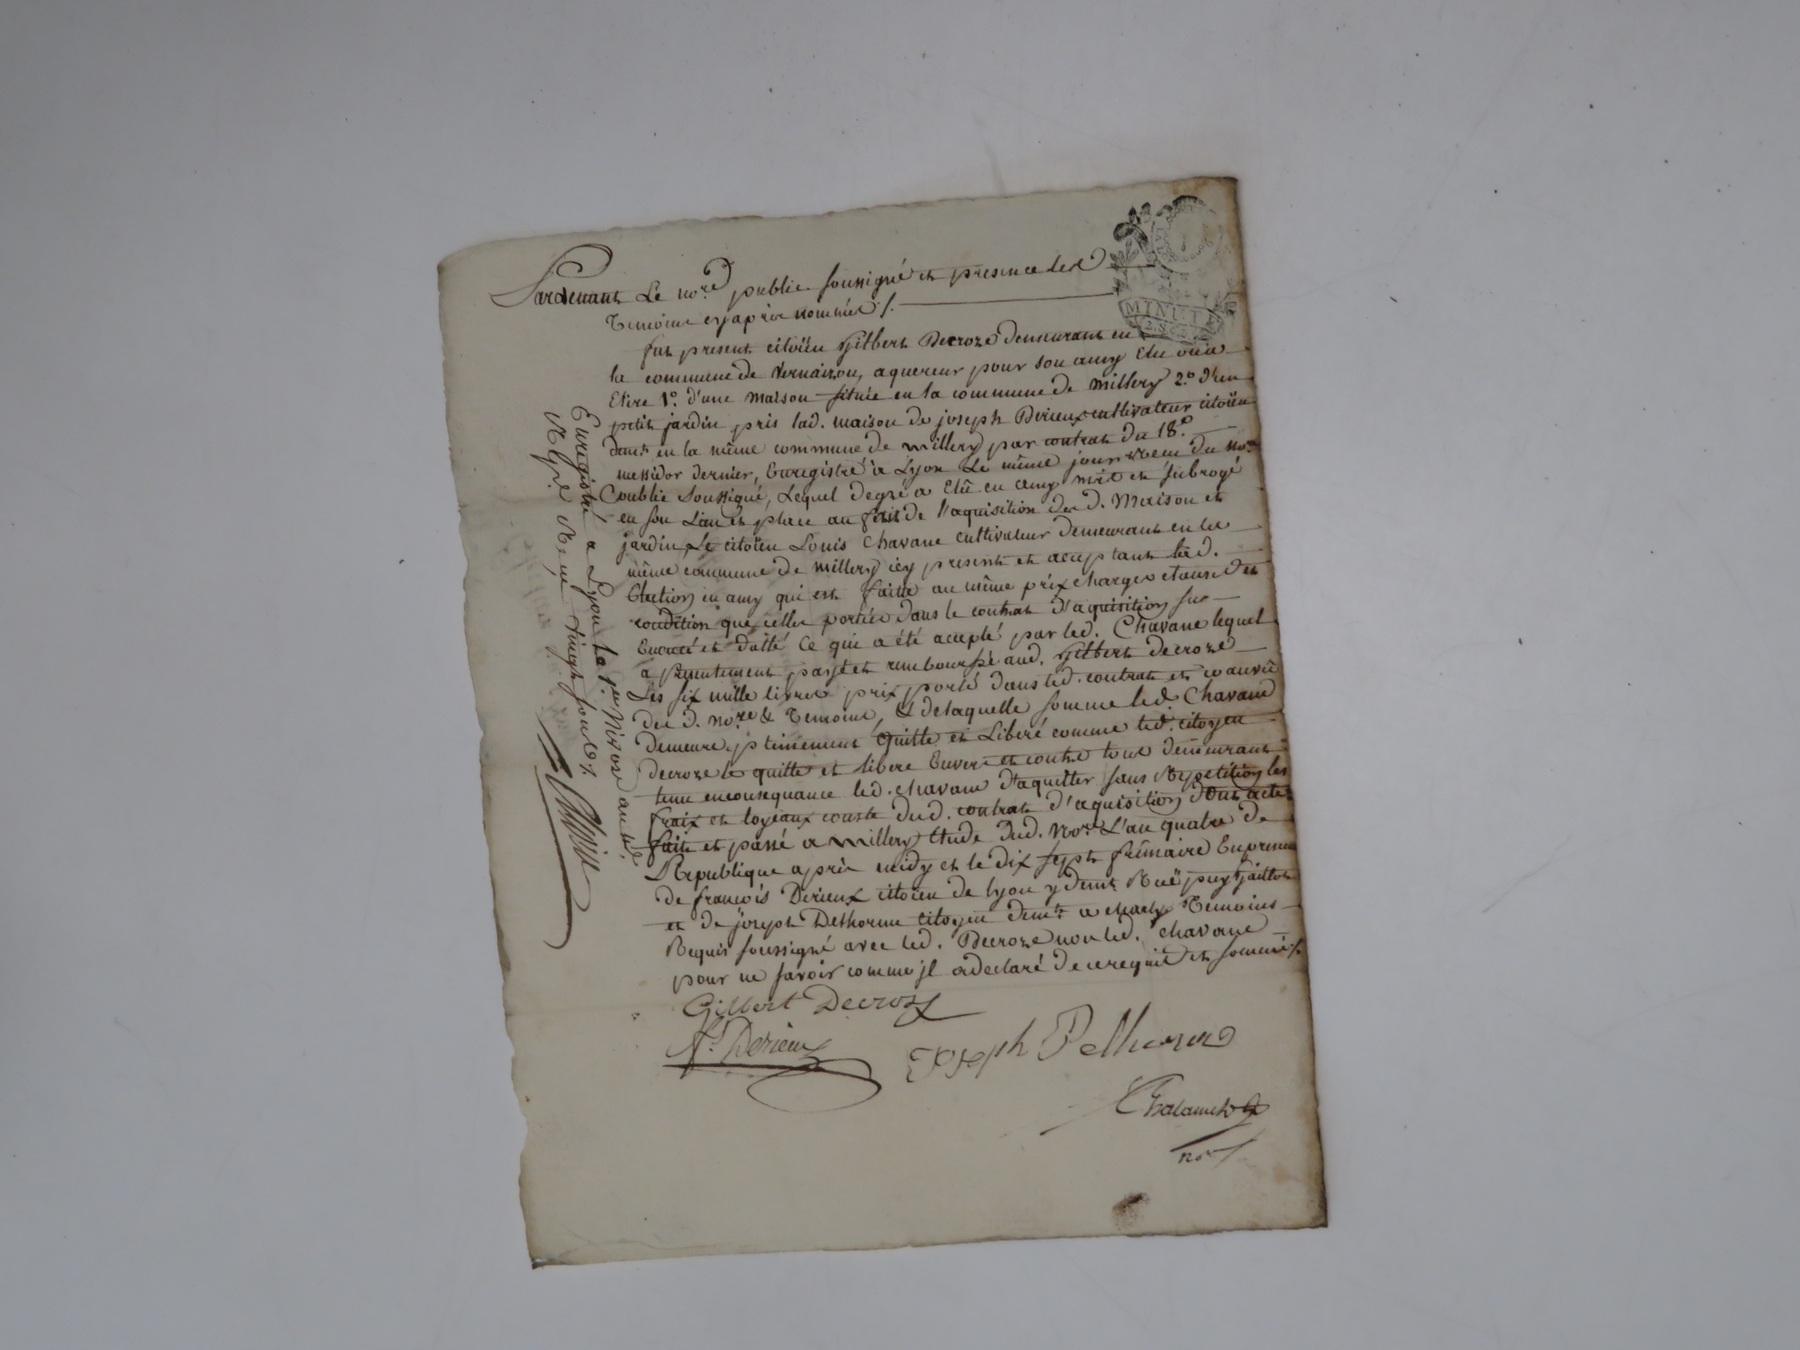 Pardevant Le no.re public soussigné et presence des
Temoins cy apres nommés /.
MINUTE
fut present citoïen Gilbert Decroze demeurant en
la commune de Vernaizon, aquereur pour son amy Elu ou a
Elire 1.o d'une maison située en la commune de Millery 2.o d'un
petit jardin pris lad. maison de joseph Derieux cultivateur citoïen
dem.t en la même commune de Millery par contrat du 18.e
messidor dernier, Enregistré à Lyon Le même jour reçu du no.re
public soussigné, Lequel degré a Elû en amy mis et subrogé
en son Lieu et place au fait de l'aquisition des d. Maison et
jardin, Le citoïen Louis Chavane cultivateur demeurant en la
même commune de Millery icy present et acceptant lad.
Election en amy qui est faitte au même prix charges clause et
condition que celles portées dans le contrat d'aquisition sus
Enoncé et datté Ce qui a été accepté par led. Chavane lequel
a presentement payé et remboursé aud. Gilbert decroze
Les six mille livres prix porté dans led. contrat et ce au vû
du d. no.re & Temoins, & de laquelle somme led. Chavane
demeure plainement Quitte et Liberé comme led. citoyen
decroze le quitte et libere Envers et contre tous demeurant
tenu en consequance led. chavane d'aquitter sans Repetition les
fraix et loyeaux couste dud. contrat d'aquisition dont acte
fait et passé a Millery Etude dud. No.re L'an quatre de
Republique après midy et le dix sept frimaire En presence
de francois Derieux citoïen de lyon y dem.t Ruë puy gaillot
et de joseph Delhorme citoyen dem.t a charly Temoins
Requis soussigné avec led. Decroze non led. chavane
pour ne savoir comme jl a declaré de ce requis et sommé /.
Gilbert Decroze
f.s Derieux
Joseph Delhorme
no.re
Enregistré a Lyon le 1.er Nivose an 4.e